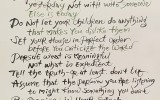 yesterday not with who someone
Else is today
Do not let your children do anything
that makes you dislike them
Set your house in perfect order
before you criticize the world
Pursue what is meaningful
Not what is expedient
Tell the truth - or at least don't lie
Assume that the person you are listening
to might know something you don't